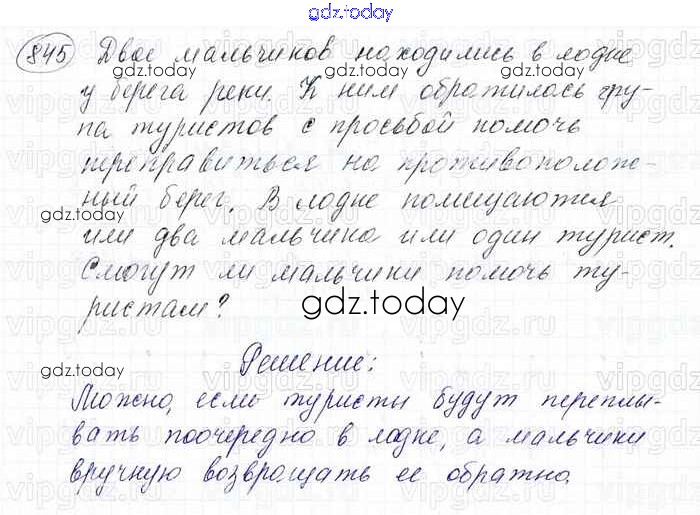 gdz.today
845 Двое мальчиков находились в лодке
gdz.today gdz.today
у берега реки. К ним обратилось гру-
па туристов с просьбой помочь
переправиться на противополож-
ный берег. В лодке помещаются
gdz.today gdz.today
или два мальчика или один турист.
Смогут ли мальчики помочь ту-
ристам?
gdz.today
Решение:
gdz.today
Можно, если туристы будут переплы-
вать поочередно в лодке, а мальчики
gdz.today gdz.today
вручную возвращать ее обратно.